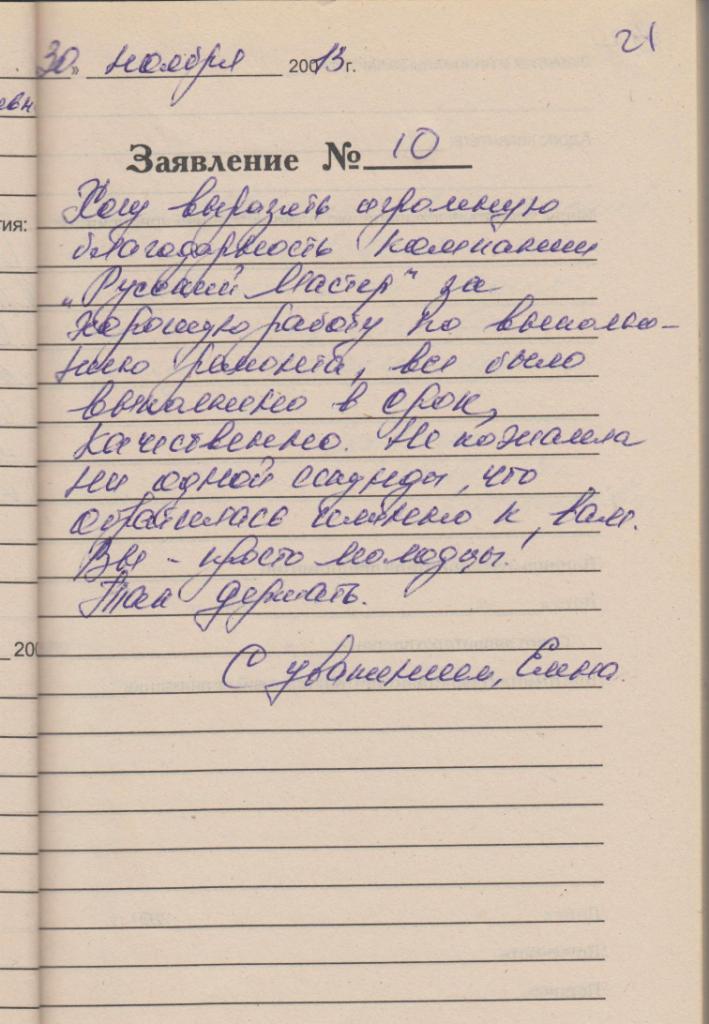 21
30» ноября 2013 г.
евн
Заявление № 10
Хочу выразить огромную
благодарность компании
"Русский Мастер" за
хорошую работу по выполне-
нию ремонта, все было
выполнено в срок,
качественно. Не пожалела
ни одной секунды, что
обратилась именно к Вам.
Вы - просто молодцы!
Так держать.
С уважением, Елена.
тия:
200